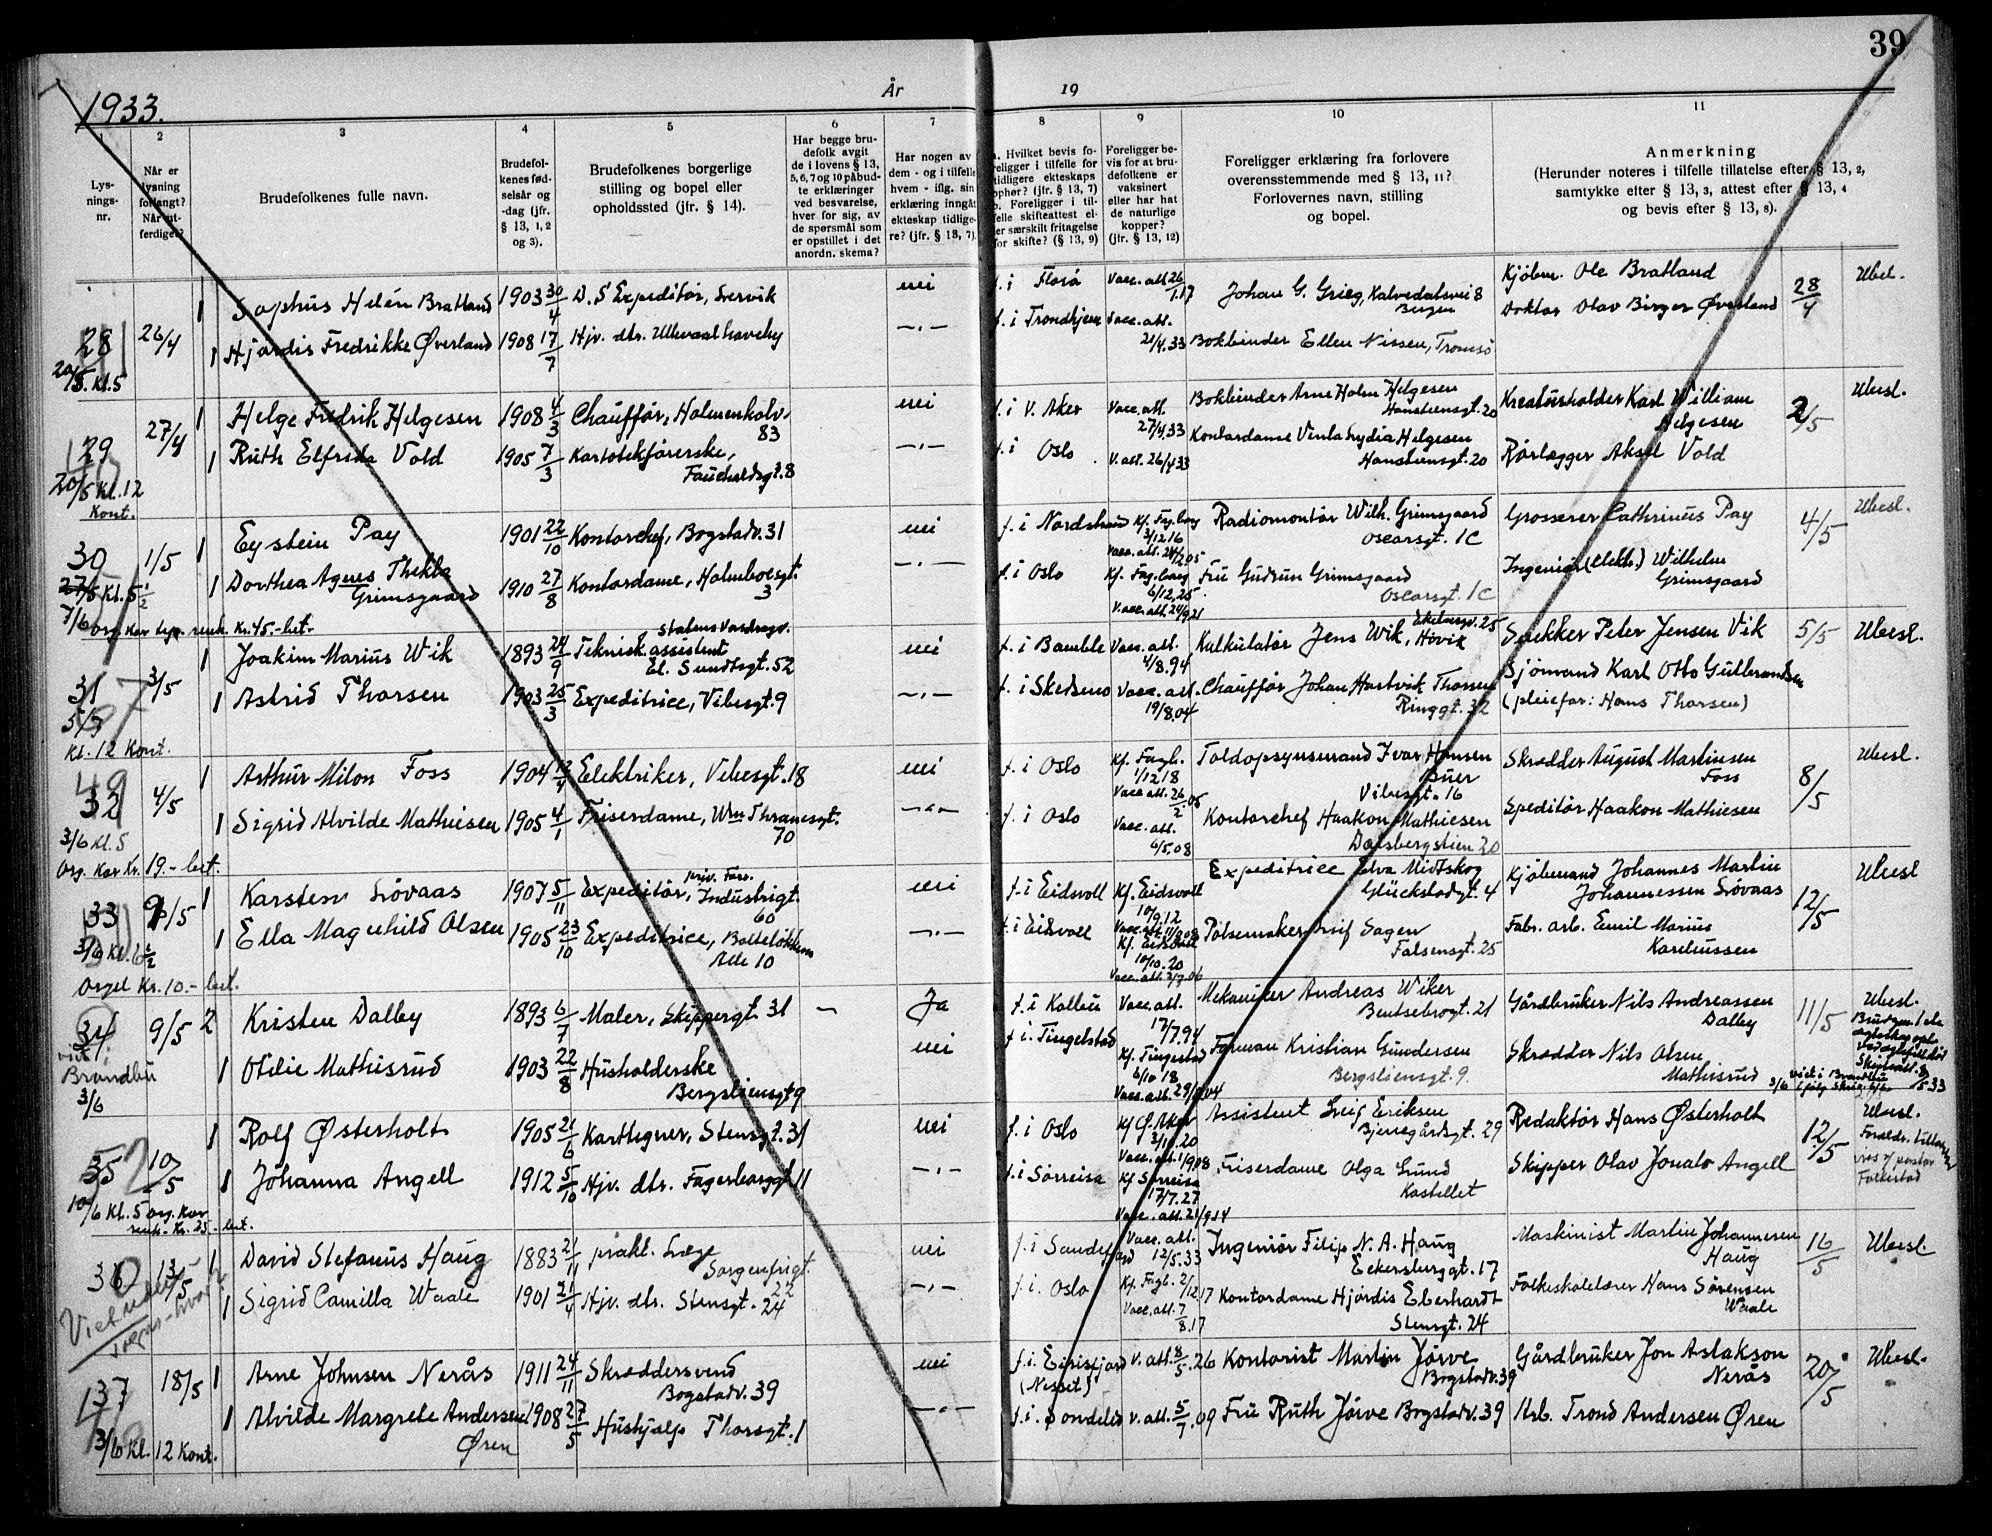 39
1933.
År
19
1
2
3
4
5
6
7
8
9
10
11
Lys-
nings-
nr.
Når er
lysning
forlangt?
Når ut-
ferdiget?
Brudefolkenes fulle navn.
Brudefol-
kenes fød-
selsår og
-dag (jfr.
§ 13, 1, 2
og 3).
Brudefolkenes borgerlige
stilling og bopel eller
opholdssted (jfr. § 14).
Har begge bru-
defolk avgit
de i lovens § 13,
5, 6, 7 og 10 påbud-
te erklæringer
ved besvarelse,
hver for sig, av
de spørsmål som
er opstillet i det
anordn. skema?
Har nogen av
dem - og i tilfelle
hvem - iflg. sin
erklæring inngåt
ekteskap tidlige-
re? (jfr. § 13, 7)
a. Hvilket bevis fo-
religger i tilfelle for
tidligere ekteskaps
ophør? (jfr. § 13, 7)
b. Foreligger i til-
felle skifteattest el-
ler særskilt fritagelse
for skifte? (§ 13, 9)
Foreligger be-
vis for at bru-
defolkene er
vaksinert
eller har hat
de naturlige
kopper?
(jfr. § 13, 12)
Foreligger erklæring fra forlovere
overensstemmende med § 13, 11?
Forlovernes navn, stilling
og bopel.
Anmerkning
(Herunder noteres i tilfelle tillatelse efter § 13, 2,
samtykke efter § 13, 3, attest efter § 13, 4
og bevis efter § 13, 8).
28 26/4
20/5. kl. 5
1 Sophus Helén Bratland 1903 30/4 D.S Expeditør, Lervik nei f. i Florø Vacc. att. 26/1.17 Johan G. Grieg, Kalvedalsvei 8 Bergen Kjøbm. Ole Bratland 28/4 Ubesl.
1 Hjørdis Fredrikke Øverland 1908 17/7 Hjv. dtr. Ullevaal haveby —"— f. i Trondhjem Vacc. att. 21/4.33 Bokbinder Ellen Nissen, Tromsø Doktor Olav Birger Øverland
29 27/4
20/5 Kl. 12
Kont.
1 Helge Fredrik Helgesen 1908 4/3 Chauffør, Holmenkolv. 83 nei f. i V. Aker Vacc. att. 27/4.33 Bokbinder Arne Holm Helgesen Hansteensgt. 20 Kreaturholder Karl William Helgesen 2/5 Ubesl.
1 Ruth Elfrida Vold 1905 7/3 Kartotekførerske, Faucholdsgt. 8 —"— f. i Oslo V. att. 26/4 33 Kontordame Venla Lydia Helgesen Hansteensgt. 20 Rørlægger Aksel Vold
30 1/5
27/5 Kl. 5 1/2
7/6 org. Kor kr. 45.- bet.
1 Eystein Pay 1901 22/10 Kontorchef, Bogstadv. 31 nei f. i Nordstrand Kf. Fag.borg 3/12 16 Radiomontør Wilh. Grimsgaard Oscarsgt. 1C Grosserer Cathrinus Pay 4/5 Ubesl.
1 Dorthea Agnes Thekla Grimsgaard 1910 27/8 Kontordame, Holmboesgt. 3 —"— f. i Oslo Kf. Fag.borg 6/12.25 V. acc. att. 24/9 21 Fru Gudrun Grimsgaard Oscarsgt. 1C Ingeniør (elektr.) Wilhelm Grimsgaard
31 3/5
5/5
Kl. 12 Kont.
1 Joakim Marius Wik 1893 24/9 Teknisk assistent Statens Vasdragv. El. Sundtsgt. 52 nei f. i Bamble Vacc. att. 4/8.94 Kalkulatør Jens Wik, Høvik Snekker Peter Jensen Vik 5/5 Ubesl.
1 Astrid Thorsen 1903 25/3 Expeditrice, Vibesgt. 9 —"— f. i Skedsmo Vacc. att. 19/8.04 Chauffør Johan Hartvik Thorsen Ringgt. 32 Sjømand Karl Otto Gulbrandsen (pleiefar: Hans Thorsen)
32 4/5
3/6 Kl. 5
Org. Kor Kr. 19.- bet.
1 Arthur Milon Foss 1904 Elektriker, Vibesgt. 18 nei f. i Oslo Kf. Fagb. 1/12 18 Vacc att. 26/2 05 Toldopsynsmand Ivar Hansen Buer Vibesgt. 16 Skrædder August Martinsen Foss 8/5 Ubesl.
1 Sigrid Alvilde Mathiesen 1905 4/1 Friserdame, Wm Thranesgt. 70 —"— f. i Oslo Vacc. att. 6/5.08 Kontorchef Haakon Mathiesen Dalsbergstien 20 Speditør Haakon Mathiesen
33 9/5
3/6 Kl. 6 1/2
Orgel Kr. 10.- bet.
1 Karsten Løvaas 1907 5/11 Expeditør, priv. Forr. Industrigt. 60 nei f. i Eidsvoll Kf. Eidsvoll 10/9.12 Expeditrice Elva Midtskog Glückstadgt. 4 Kjøbmand Johannes Martin Johannessen Løvaas 12/5 Ubesl
1 Ella Magnhild Olsen 1905 23/10 Expeditrice, Bolteløkkens Alle 10 —"— f. i Eidsvoll Kf. Eidsvoll 10/10.20 Vacc. att. 2/7.06 Pølsemaker Leif Sagen Falsensgt. 25 Fabr. arb. Emil Marius Kareliussen
34 9/5
viet i
Brandbu
3/6
2 Kristen Dalby 1893 6/7 Maler, Skippergt. 31 — Ja f. i Kolbu Vacc. att. 17/7.94 Mekaniker Andreas Wiker Bentsebrogt. 21 Gårdbruker Nils Andreassen Dalby 11/5 Ubesl.
1 Otilie Mathisrud 1903 22/8 Husholderske Bergsliensgt 9 nei f. i. Tingelstad Kf. Tingelstad 6/10 18 Vacc. att. 29/ 04 Formann Kristian Gundersen Bergsliensgt. 9. Skrædder Nils Olsen Mathisrud
35 10/5
10/6 Kl. 5 org. Kor
Kr. 25.- bet.
1 Rolf Østerholt 1905 21/6 Karttegner, Stensgt. 31 nei f. i Oslo Kf Ø. Aker 3/10.20 Vacc. att. 1/9 08 Assistent Leif Eriksen Bjerregårdsgt. 29 Redaktør Hans Østerholt 12/5 Ubesl.
1 Johanna Angell 1912 5/10 Hjv. dtr. Fagerborggt 11 —"— f. i Sørreisa Kf Sørreisa 17/7.27 Vacc. att. 21/9.14 Friserdame Olga Lund Kastellet Skipper Olav Jonato Angell
36 13/5
1 David Stefanus Haug 1883 21/11 prakt. Læge Sorgenfrigt. 22 nei f. i Sandefjord Vacc. att. 12/5.33 Ingeniør Filip N. A. Haug Eckersberggt. 17 Maskinist Martin Johannesen Haug 16/5 Ubesl.
1 Sigrid Camilla Waale 1901 21/4 Hjv. dtr. Stensgt. 24 —"— f. i. Oslo Kf. Fagb. 2/12 17 Vacc. att. 7/8.17 Kontordame Hjørdis Eberhardt Stensgt. 24 Folkeskolelærer Hans Sørensen Waale
37 18/5
3/6 Kl. 12 Kont.
1 Arne Johnsen Nerås 1911 24/11 Skræddersvend Bogstadv. 39 nei f. i. Eirisfjord (Nesset) V. att. 8/5.26 Kontorist Martin Jørve Bogstadv. 39 Gårdbruker Jon Aslakson Nerås 20/5 Ubesl.
1 Alvilde Margrete Andersen Øren 1908 27/5 Hushjælp Thorsgt. 1 —"— f. i. Søndeled V. att. 5/7.09 Fru Ruth Jørve Bogstadv. 39 Arb. Trond Andersen Øren